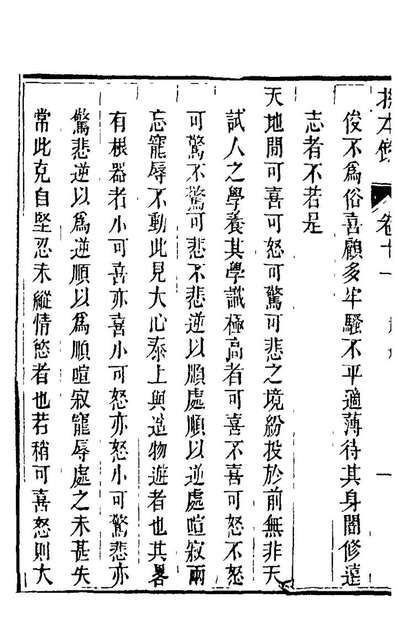 卷十一
俊不爲俗喜顧多牢騷不平適薄待其身闇修遠
志者不若是
天地間可喜可怒可驚可悲之境紛投於前無非天
試人之學養其學識極高者可喜不喜可怒不怒
可驚不驚可悲不悲逆以順處順以逆處喧寂兩
忘寵辱不動此見大心泰上與造物遊者也其畧
有根器者小可喜亦喜小可怒亦怒小可驚悲亦
驚悲逆以爲逆順以爲順喧寂寵辱處之未甚失
常此克自堅忍未縱情慾者也若稍可喜怒則大